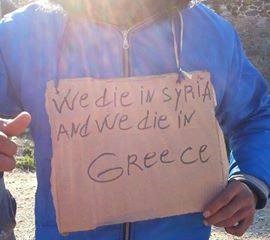 We die in SYRIA
AND We die in
GReece